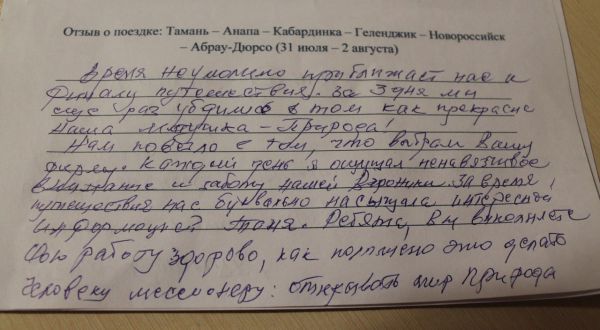 Отзыв о поездке: Тамань – Анапа – Кабардинка – Геленджик – Новороссийск
– Абрау-Дюрсо (31 июля – 2 августа)
Время неумолимо приближает нас к
Финалу путешествия. За 3 дня мы
еще раз убедились в том как прекрасна
Наша Матушка – Природа!
Нам повезло с тем, что выбрали Вашу
фирму. Каждый день я ощущал ненавязчивое
внимание и заботу нашей Вероники. За время
путешествия нас буквально насыпала интересной
информацией Таня. Ребята, Вы выполняете
свою работу здорово, как положено это делать
человеку миссионеру: открывать мир Природы